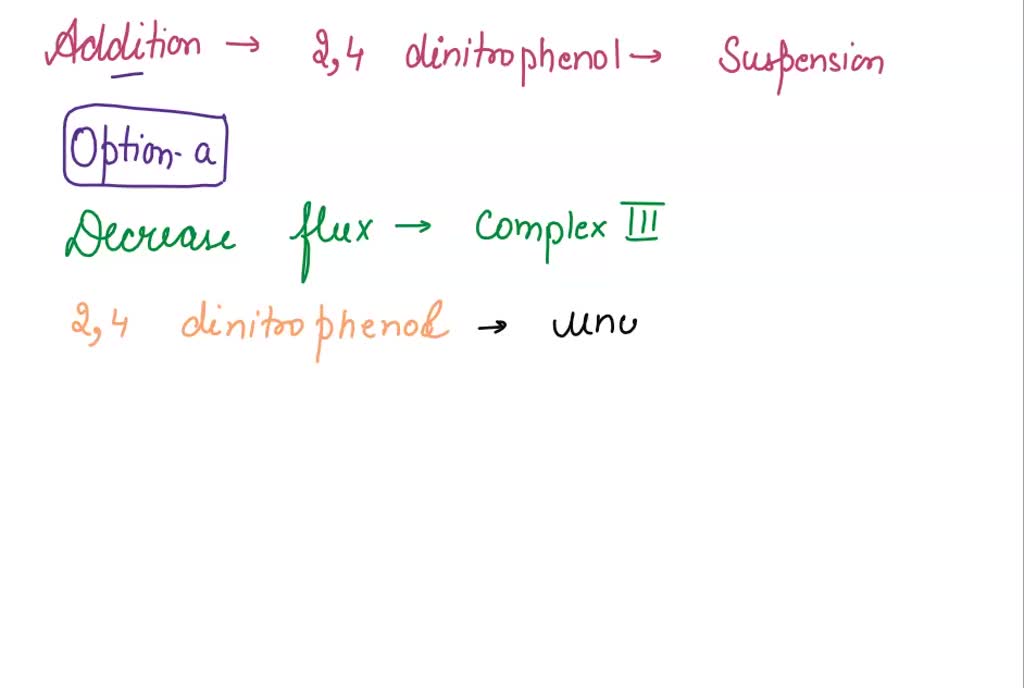 Addition → 2,4 dinitrophenol → Suspension
Option-a
Decrease flux → Complex III
2,4 dinitrophenol → unc